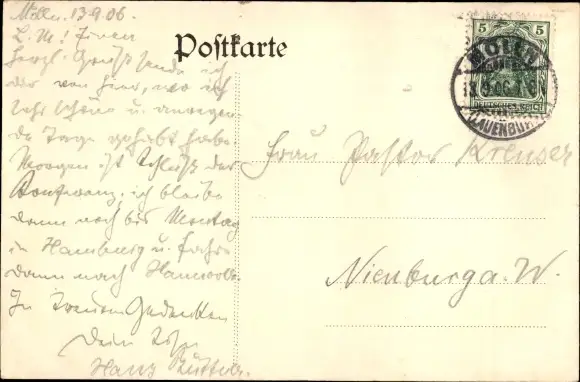 Mölln. 13.9.06.
L. M.!
Herzl. Grüße sende ich
dir von hier, wo ich
sehr schöne u. anregen-
de Tage gehabt habe.
Morgen ist Schluß der
Konferenz, ich bleibe
dann noch bis Montag
in Hamburg u. fahre
dann nach Hannover.
In treuem Gedenken
Dein
Hans
Postkarte
5 5
MÖLLN
13.9.06.
DEUTSCHES REICH
(LAUENBURG)
Frau Pastor Kreuser
Nienburg a. W.